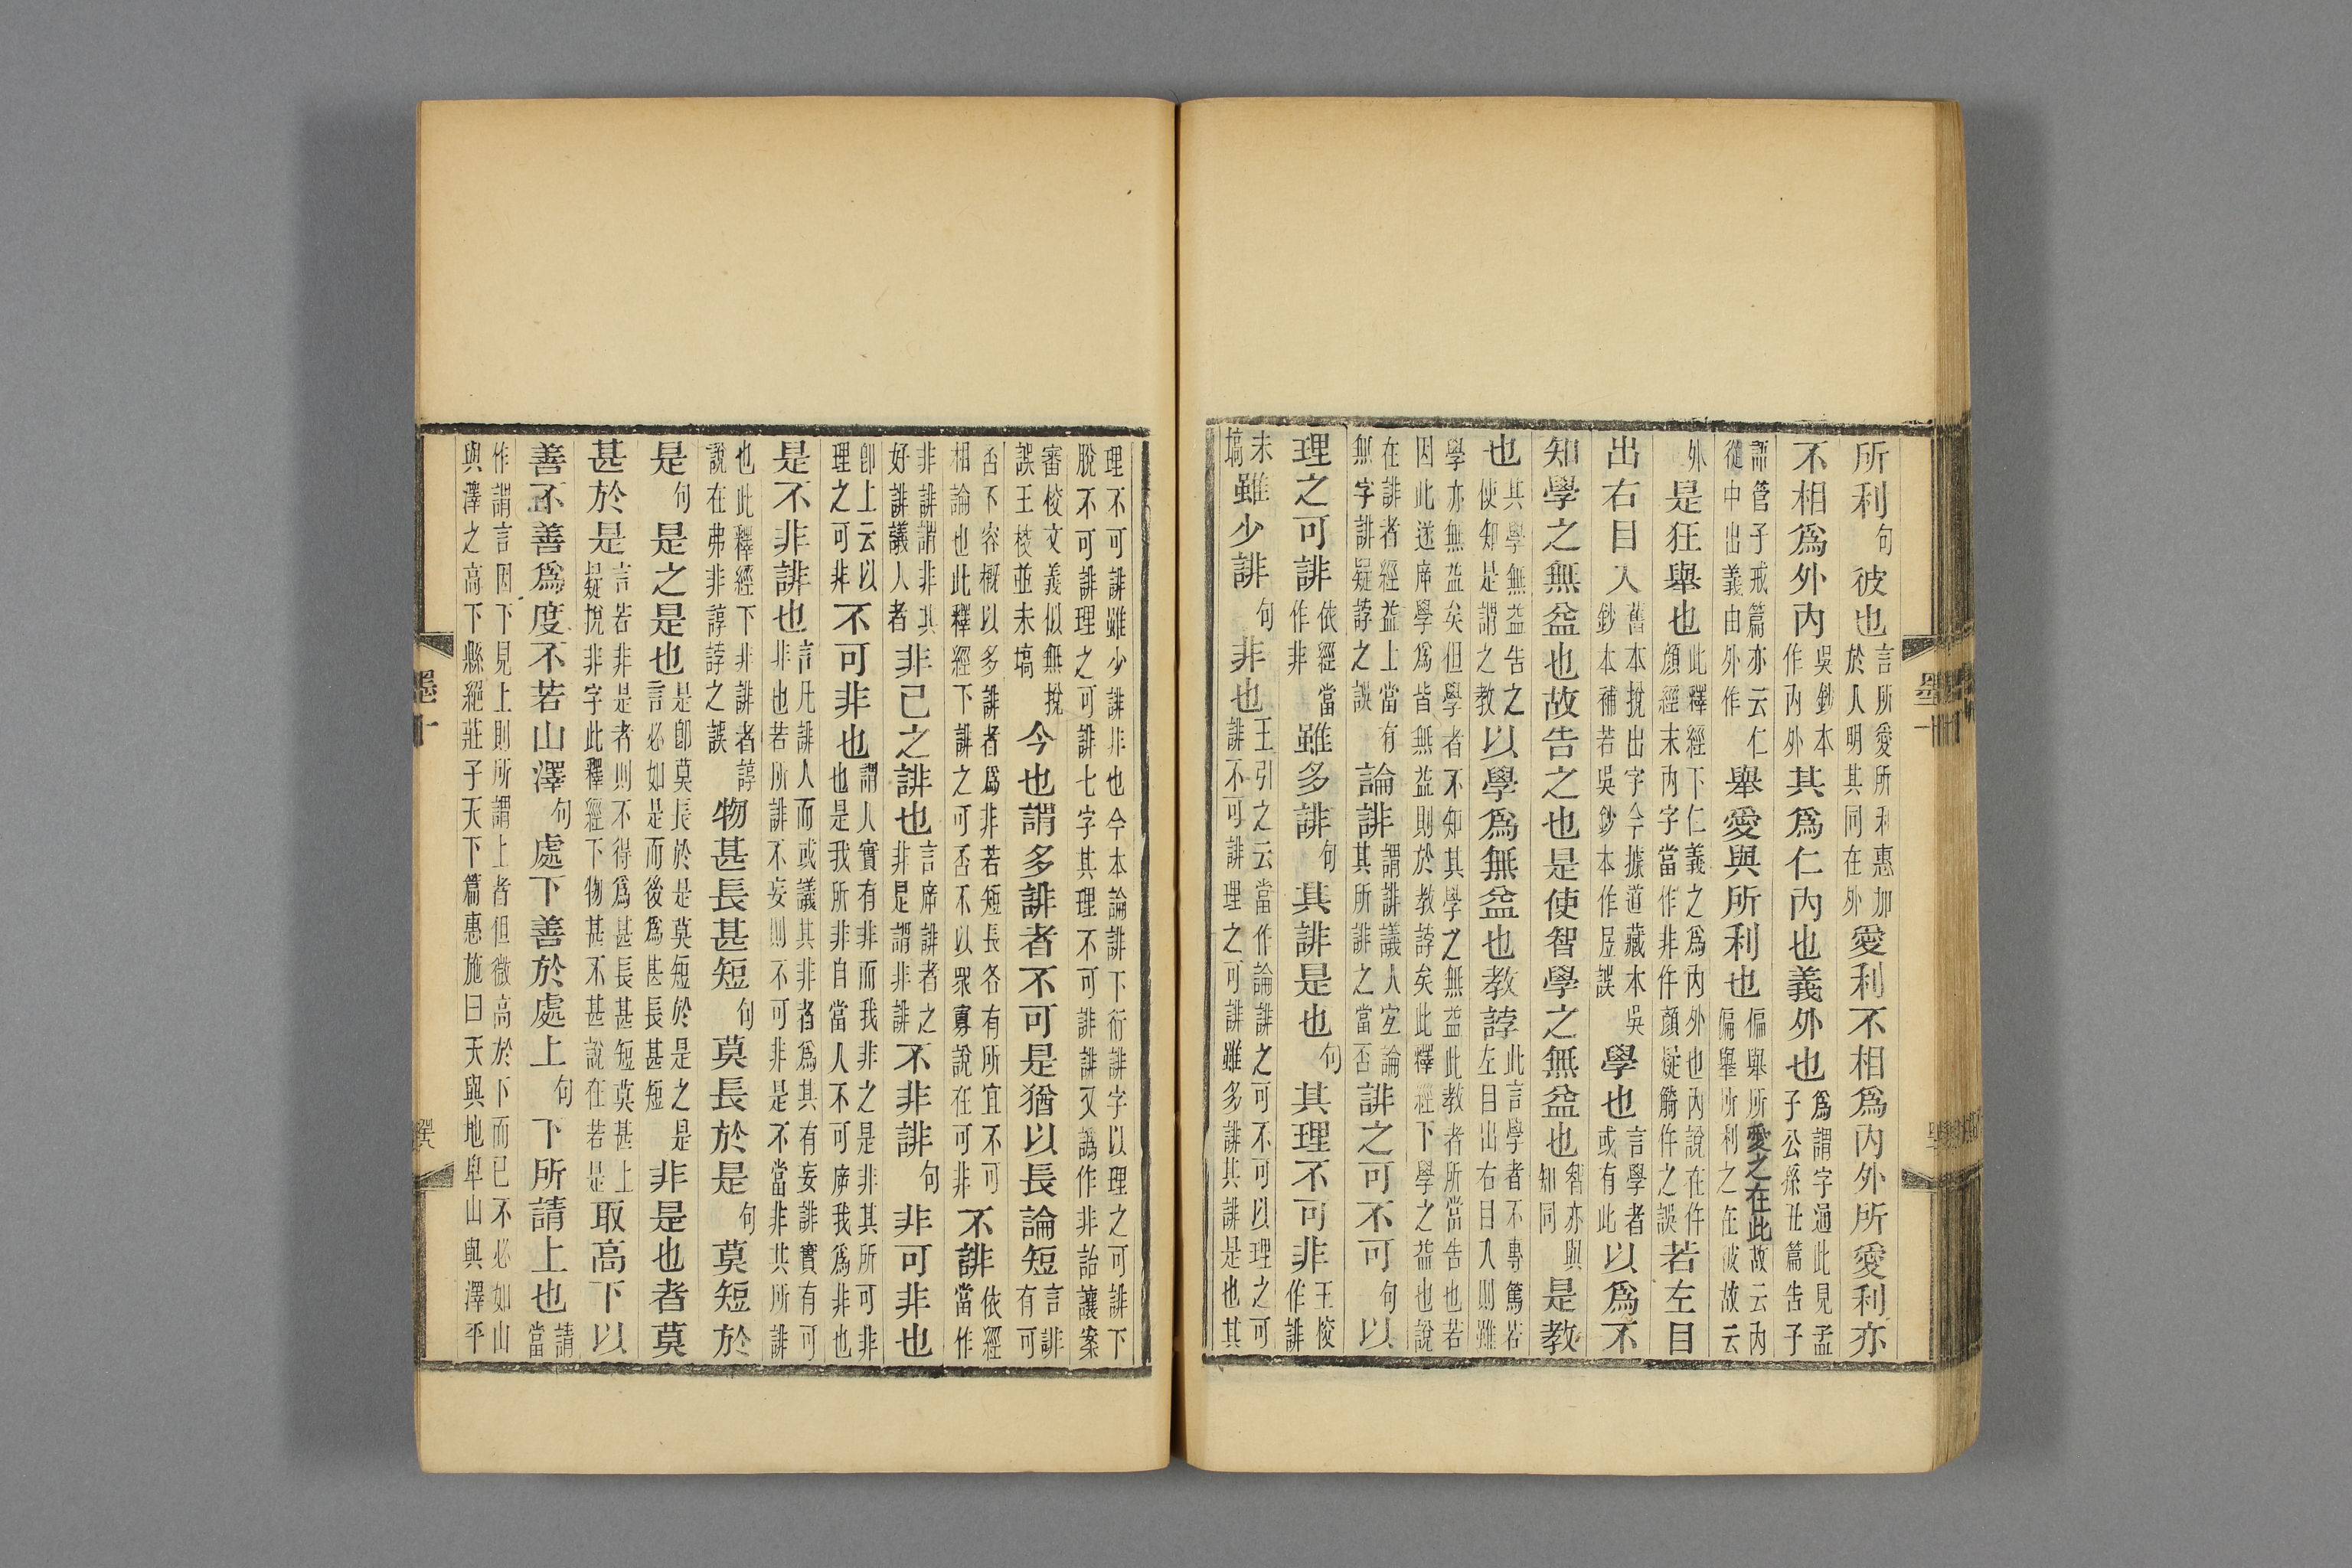 所利句彼也言所愛所利惠加於人明其同在外愛利不相爲內外所愛利亦
不相爲外內吳鈔本作內外其爲仁內也義外也爲謂字通此見孟子公孫丑篇告子
語管子戒篇亦云仁從中出義由外作舉愛與所利也偏舉所愛之在此故云內偏舉所利之在彼故云
外是狂舉也此釋經下仁義之爲內外也內說在仵顏經末內字當作非仵顏疑觭仵之誤若左目
出右目入舊本挩出字今據道藏本吳鈔本補若吳鈔本作㞐誤學也言學者或有此以爲不
知學之無益也故告之也是使智學之無益也智亦與知同是教
也其學無益告之使知是謂之教以學爲無益也教誖此言學者不專篤若左目出右目入則雖
學亦無益矣但學者不知其學之無益此教者所當告也若因此遂庴學爲皆無益則於教誖矣此釋經下學之益也說
在誹者經益上當有無字誹疑誖之誤論誹謂誹議人宜論其所誹之當否誹之可不可句以
理之可誹依經當作非雖多誹句其誹是也句其理不可非王校作誹
未塙雖少誹句非也王引之云當作論誹之可不可以理之可誹不可誹理之可誹雖多誹其誹是也其
理不可誹雖少誹非也今本論誹下衍誹字以理之可誹下脫不可誹理之可誹七字其理不可誹誹又譌作非詒讓案
審校文義似無挩誤王校並未塙今也謂多誹者不可是猶以長論短言誹有可
否不容概以多誹者爲非若短長各有所宜不可相論也此釋經下誹之可否不以衆寡說在可非不誹依經當作
非誹謂非其好誹議人者非己之誹也言庴誹者之非是謂非誹不非誹句非可非也
卽上云以理之可非不可非也謂人實有非而我非之是非其所可非也是我所非非自當人不可庴我爲非也
是不非誹也言凡誹人而或議其非者爲其有妄誹實有可非也若所誹不妄則不可非是不當非其所誹
也此釋經下非誹者諄說在弗非諄誖之誤物甚長甚短句莫長於是句莫短於
是句是之是也是卽莫長於是莫短於是之是言必如是而後爲甚長甚短非是也者莫
甚於是言若非是者則不得爲甚長甚短莫甚上疑挩非字此釋經下物甚不甚說在若是取高下以
善不善爲度不若山澤句處下善於處上句下所請上也請當
作謂言因下見上則所謂上者但微高於下而已不必如山與澤之高下縣絕莊子天下篇惠施曰天與地卑山與澤平
墨十